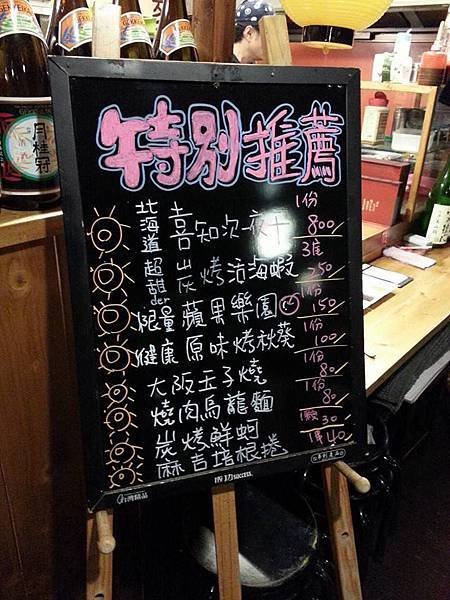 月桂冠
特別推薦
北海道 喜知次一夜干 1份 800
炭烤活海蝦 3隻 250
超甜der 限量 蘋果樂園 1份 150
健康 原味烤秋葵 1份 100
大阪玉子燒 1份 80
燒肉烏龍麵 1份 80
炭烤鮮蚵 1顆 30
麻吉培根捲 1串 40
成功 SUCCESS
台灣精品